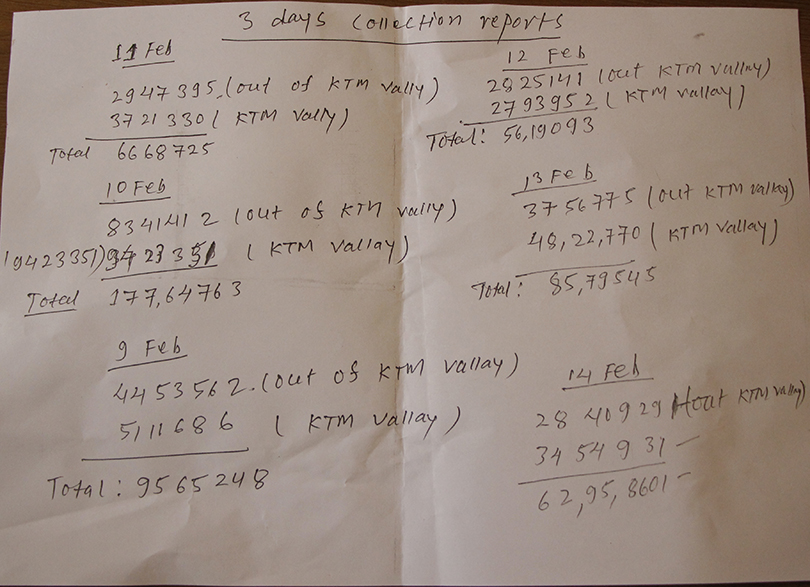 3 days Collection reports
11 Feb
2947395.(out of KTM vally)
3721330 ( KTM vally)
Total 6668725
10 Feb
8341412 (out of KTM vally)
(9423351) ( KTM vallay)
Total 177,64763
9 Feb
4453562.(out of KTM vallay)
5111686 ( KTM vallay)
Total: 9565248
12 Feb
2825141 (out KTM vallay)
2793952 ( KTM vallay)
Total: 56,19093
13 Feb
3756775 (out KTM vallay)
48,22,770 ( KTM vallay)
Total: 85,79545
14 Feb
28 40929 out KTM vallay)
34 54 931 –
62,95,8601 –